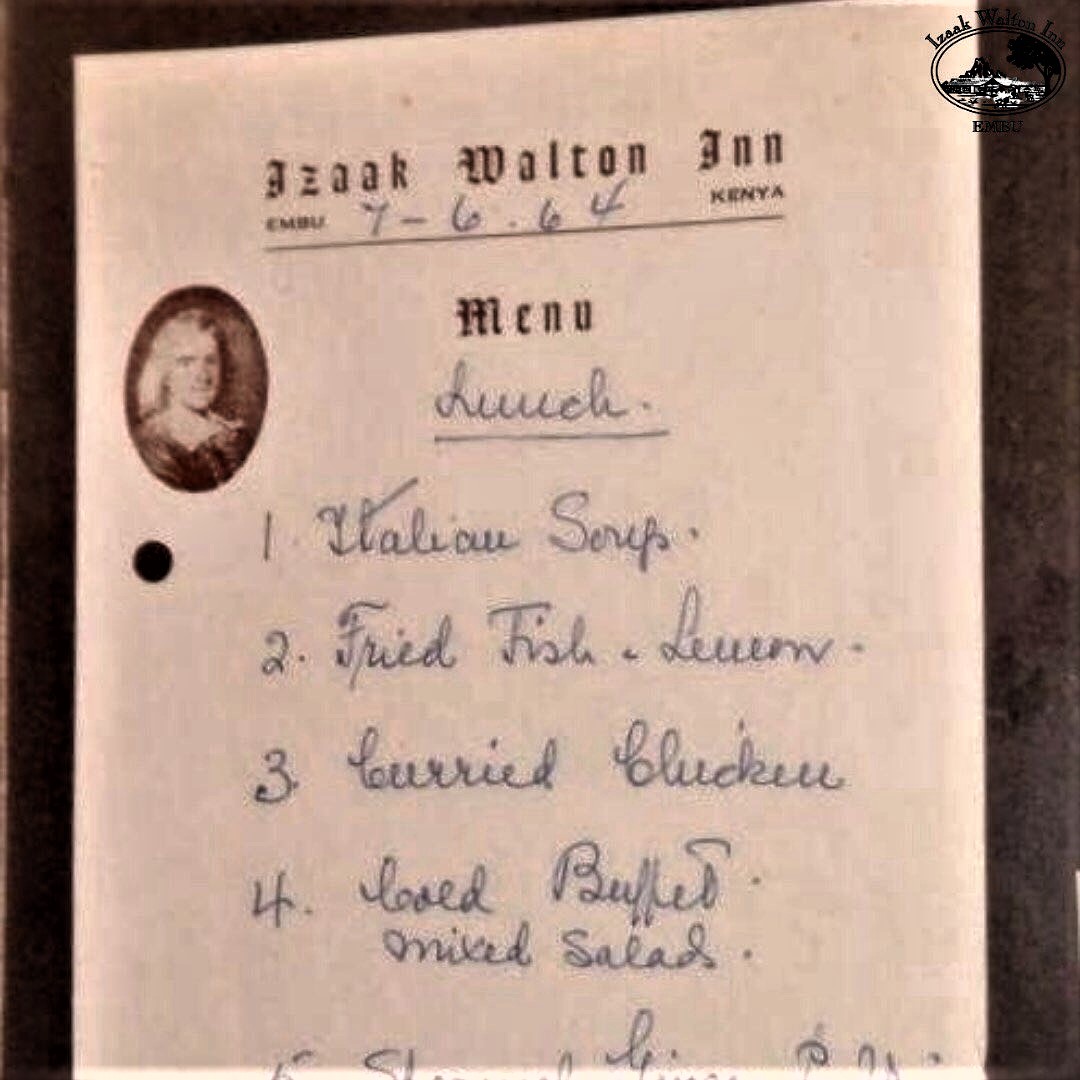 Izaak Walton Inn
EMBU
Izaak Walton Inn
EMBU 7-6.64 KENYA
Menu
Lunch.
1. Italian Soup.
2. Fried Fish - Lemon.
3. Curried Chicken
4. Cold Buffet.
mixed Salads.
5. Steamed